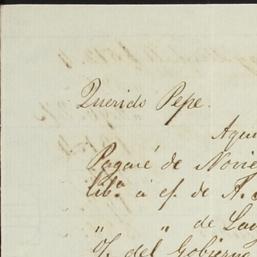 Querido Pepe.
Aqui
Pagaré de Novie
lib.ª á cf. de A.
" " de Lag
of. del Gobierno